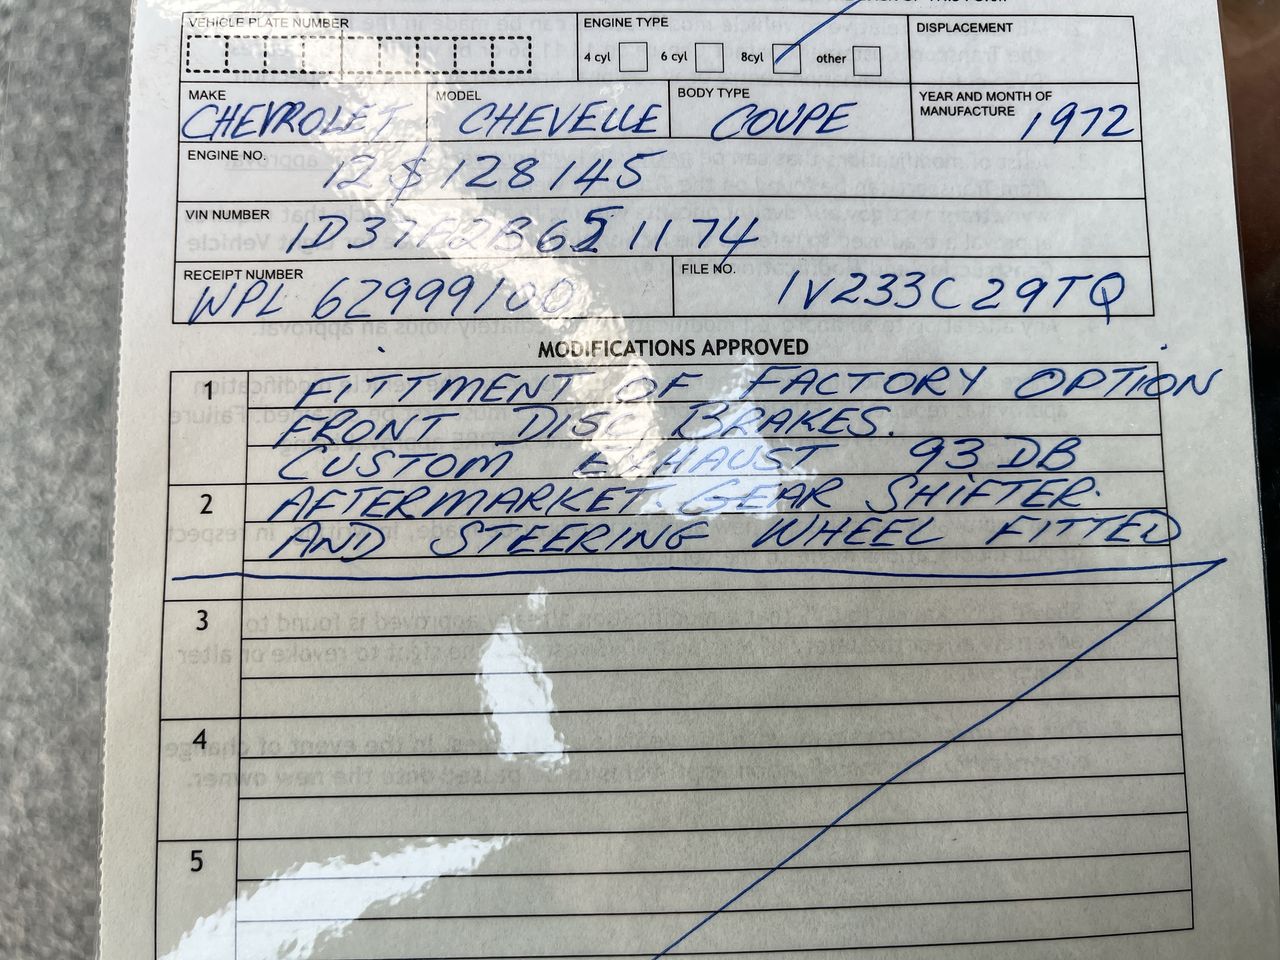 VEHICLE PLATE NUMBER
ENGINE TYPE
4 cyl 6 cyl 8cyl other
DISPLACEMENT
MAKE
CHEVROLET
MODEL
CHEVELLE
BODY TYPE
COUPE
YEAR AND MONTH OF
MANUFACTURE 1972
ENGINE NO.
12$128145
VIN NUMBER
RECEIPT NUMBER
WPL 62999100
FILE NO.
1V233C29TQ
MODIFICATIONS APPROVED
1 FITTMENT OF FACTORY OPTION
FRONT DISC BRAKES.
CUSTOM EXHAUST 93 DB
2 AFTERMARKET. GEAR SHIFTER.
AND STEERING WHEEL FITTED
3
4
5